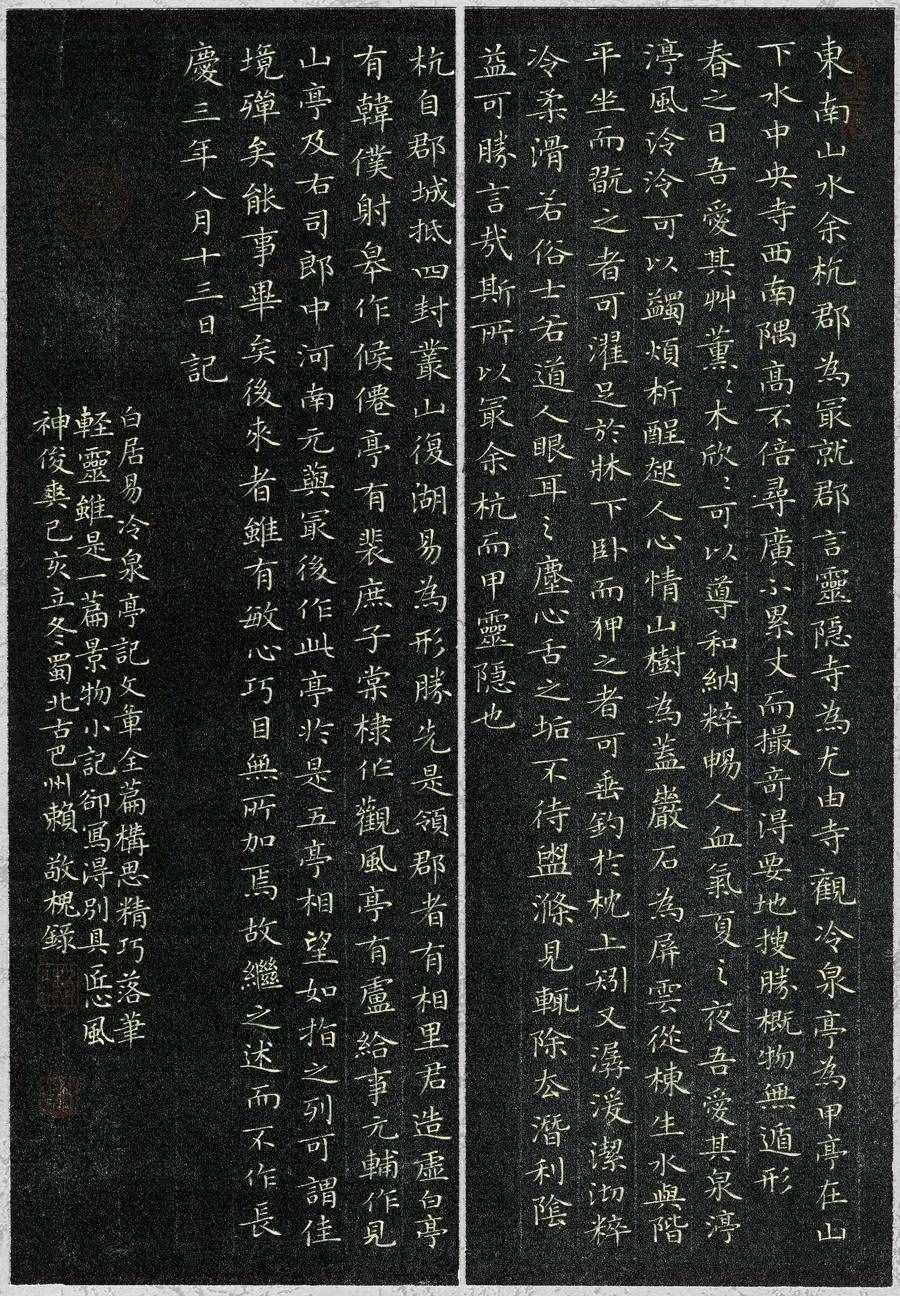 東南山水余杭郡為冣就郡言靈隠寺為尤由寺觀冷泉亭為甲亭在山
下水中央寺西南隅髙不倍尋廣不累丈而撮竒淂要地搜勝概物無遁形
春之日吾愛其艸薰〻木欣〻可以導和納粹暢人血氣夏之夜吾愛其泉渟
渟風泠泠可以蠲煩析酲起人心情山樹為蓋巖石為屏雲從棟生水與階
平坐而翫之者可濯足於牀下卧而狎之者可垂釣於枕上矧又潺湲潔沏粹
冷柔滑若俗士若道人眼耳之塵心舌之垢不待盥滌見輒除去潛利陰
益可勝言㢤斯所以冣余杭而甲靈隠也
杭自郡城抵四封叢山復湖易為形勝先是領郡者有相里君造虛白亭
有韓僕射皋作候僊亭有裴庶子棠棣作觀風亭有盧給事元輔作見
山亭及右司郎中河南元藇冣後作此亭於是五亭相望如指之列可謂佳
境殫矣能事畢矣後来者雖有敏心巧目無所加焉故繼之述而不作長
慶三年八月十三日記
白居易冷泉亭記文章全篇構思精巧落筆
輕靈雖是一篇景物小記卻寫得別具匠心風
神俊爽己亥立冬蜀北古巴州賴敬槐錄